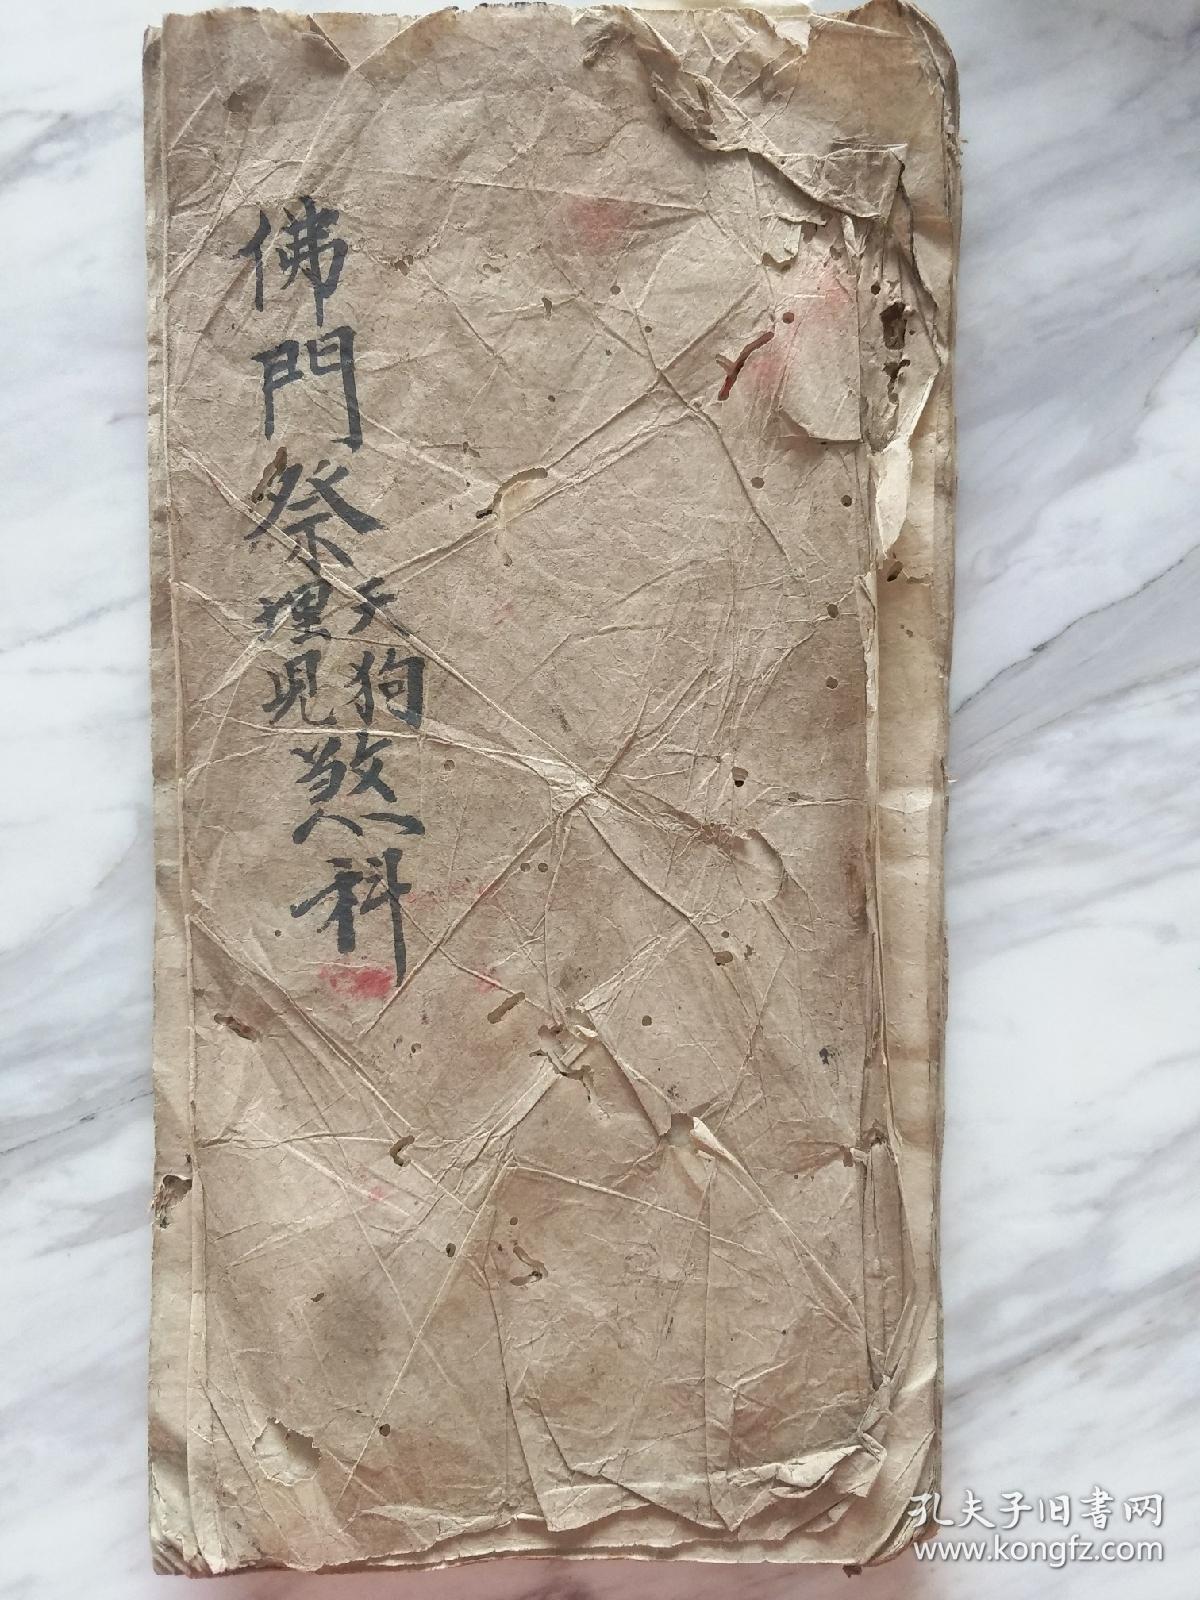 佛門祭
天狗
埋児
煞科
孔夫子旧書网
www.kongfz.com